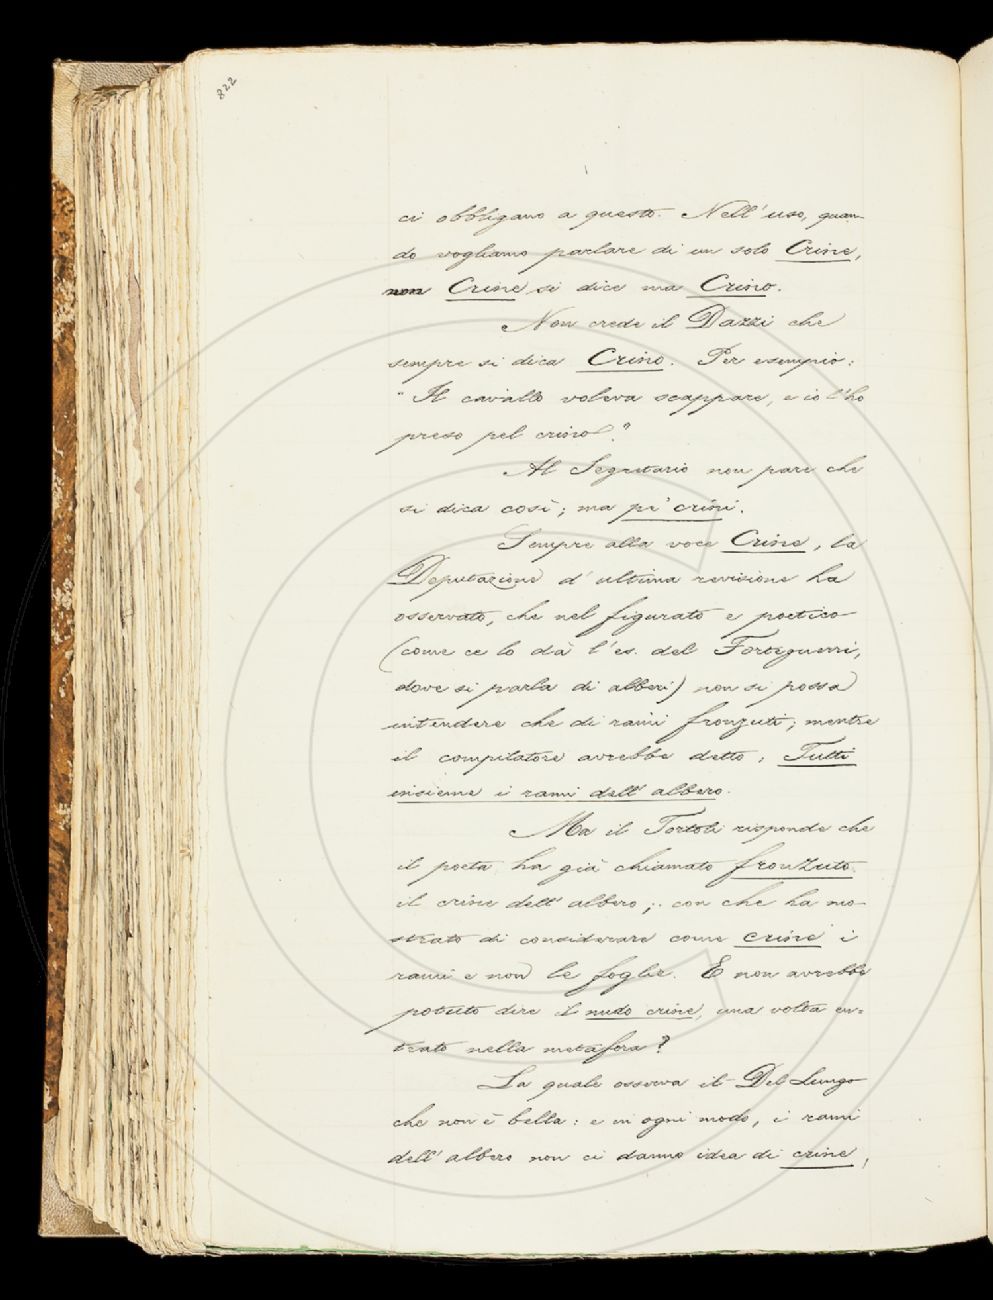 822
ci obbligano a questo. Nell'uso, quan-
do vogliamo parlare di un solo Crine,
non Crine si dice ma Crino.
Non crede il Dazzi che
sempre si dica Crino. Per esempio:
"Il cavallo voleva scappare, e io l'ho
preso pel crino"?
Al Segretario non pare che
si dica così; ma pe' crini.
Sempre alla voce Crine, la
Deputazione d'ultima revisione ha
osservato, che nel figurato e poetico
(come ce lo dà l'es. del Forteguerri,
dove si parla di alberi) non si possa
intendere che di rami fronzuti; mentre
il compilatore avrebbe detto: Tutti
insieme i rami dell'albero.
Ma il Tortoli risponde che
il poeta ha già chiamato fronzuto
il crine dell'albero; con che ha mo-
strato di considerare come crine i
rami e non le foglie. E non avrebbe
potuto dire il nudo crine, una volta en-
trato nella metafora?
La quale osserva il Del Lungo
che non è bella: e in ogni modo, i rami
dell'albero non ci danno idea di crine,